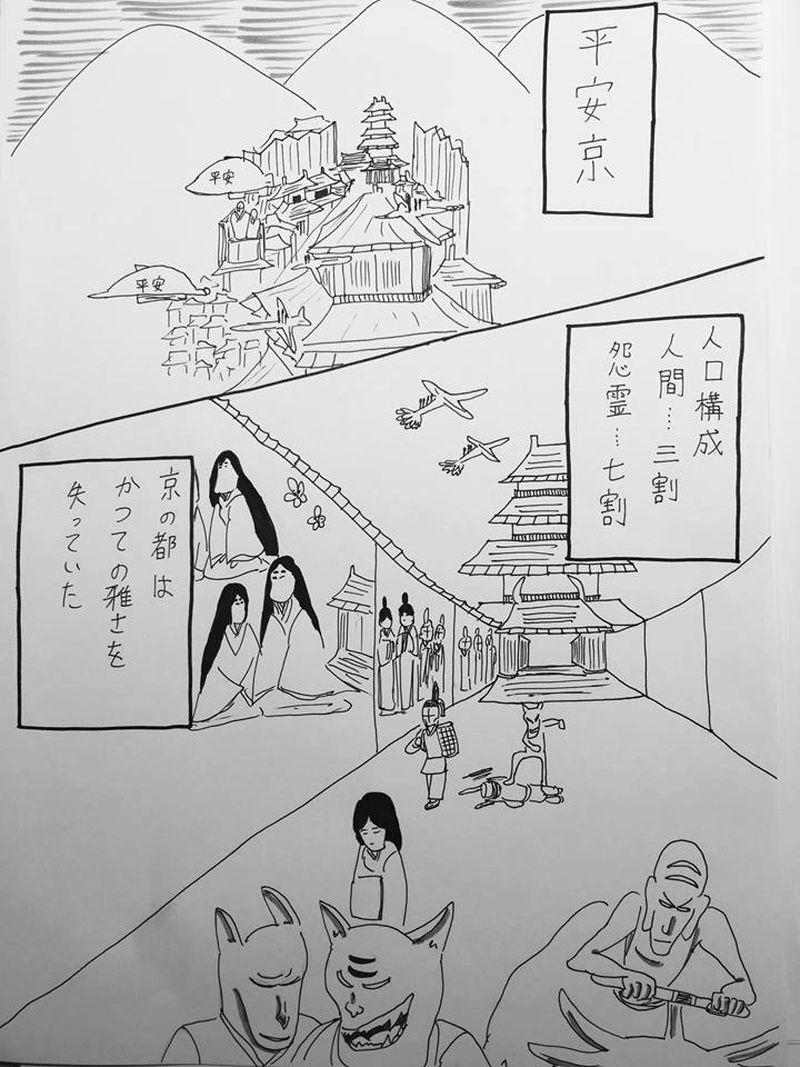 平安京
平安
平安
人口構成
人間…三割
怨霊…七割
京の都は
かつての雅さを
失っていた